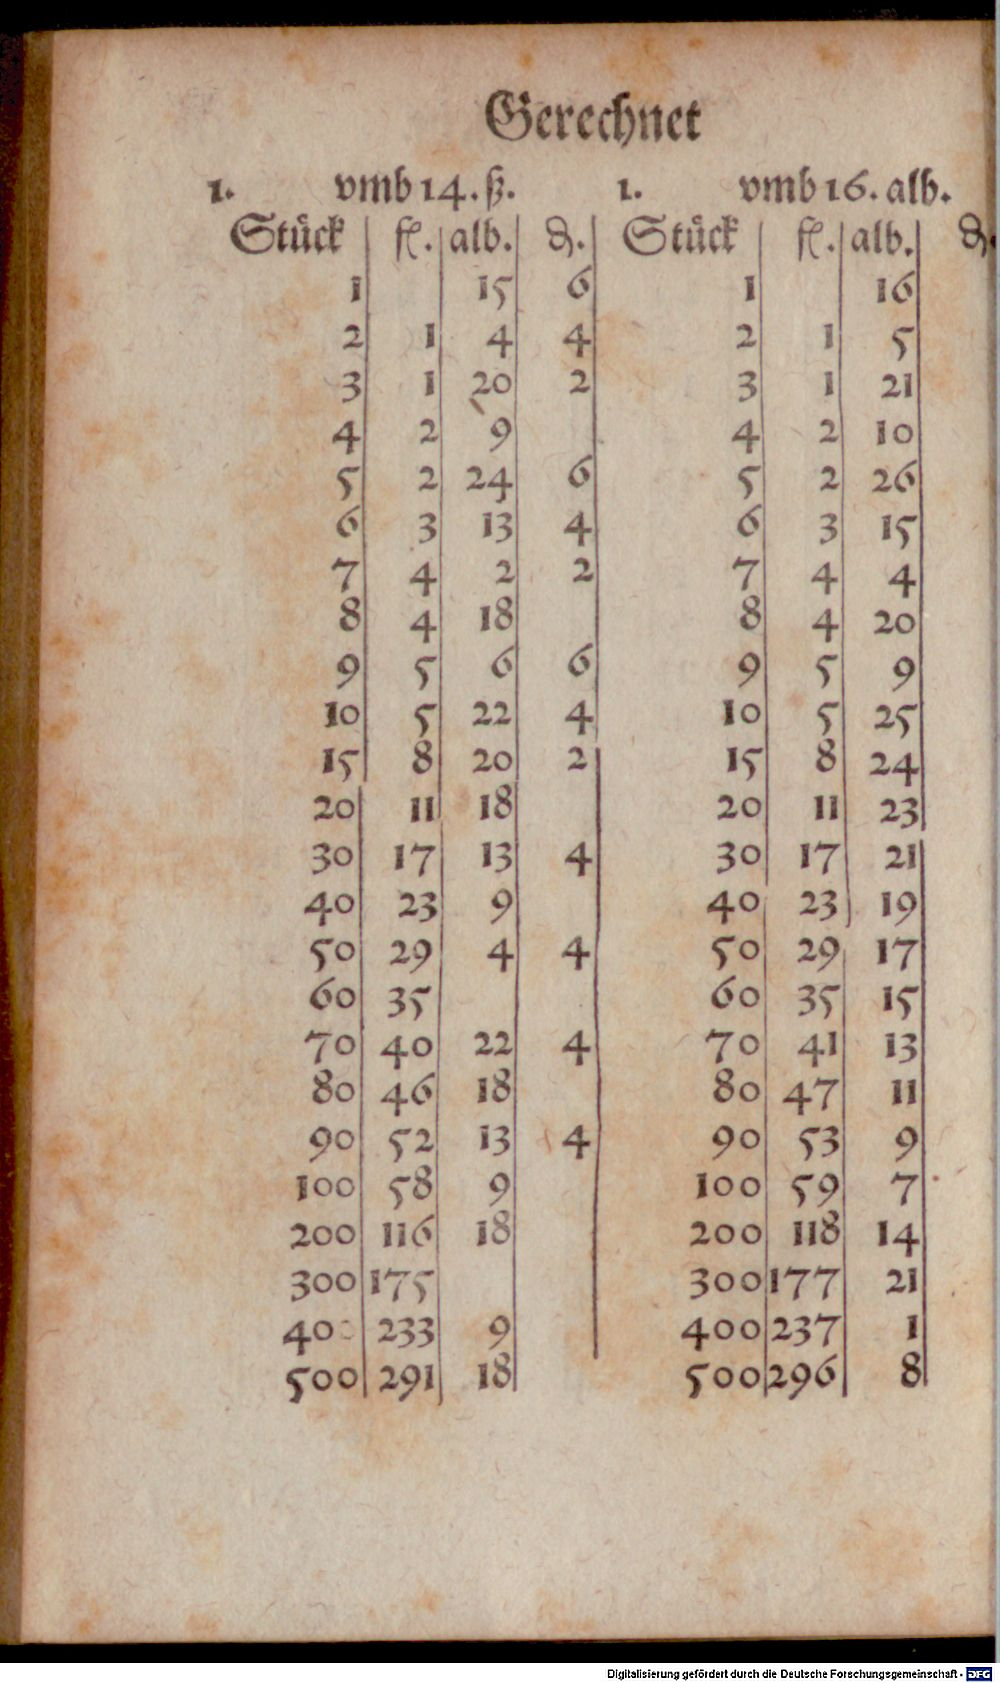 Gerechnet
1. vmb 14. ß. 1. vmb 16. alb.
Stück fl. alb. ₰. Stück fl. alb. ₰.
1 15 6 1 16
2 1 4 4 2 1 5
3 1 20 2 3 1 21
4 2 9 4 2 10
5 2 24 6 5 2 26
6 3 13 4 6 3 15
7 4 2 2 7 4 4
8 4 18 8 4 20
9 5 6 6 9 5 9
10 5 22 4 10 5 25
15 8 20 2 15 8 24
20 11 18 20 11 23
30 17 13 4 30 17 21
40 23 9 40 23 19
50 29 4 4 50 29 17
60 35 60 35 15
70 40 22 4 70 41 13
80 46 18 80 47 11
90 52 13 4 90 53 9
100 58 9 100 59 7
200 116 18 200 118 14
300 175 300 177 21
400 233 9 400 237 1
500 291 18 500 296 8
Digitalisierung gefördert durch die Deutsche Forschungsgemeinschaft - DFG